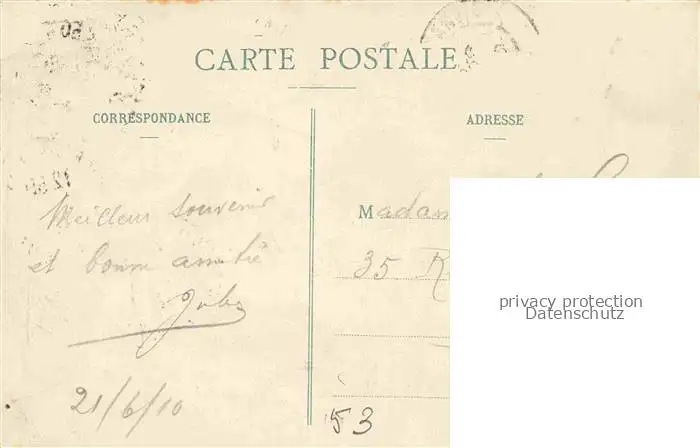 CARTE POSTALE
CORRESPONDANCE
ADRESSE
Meilleur souvenir
et bonne amitié
Jules
21/6/10
Madam
35 R
53
privacy protection
Datenschutz